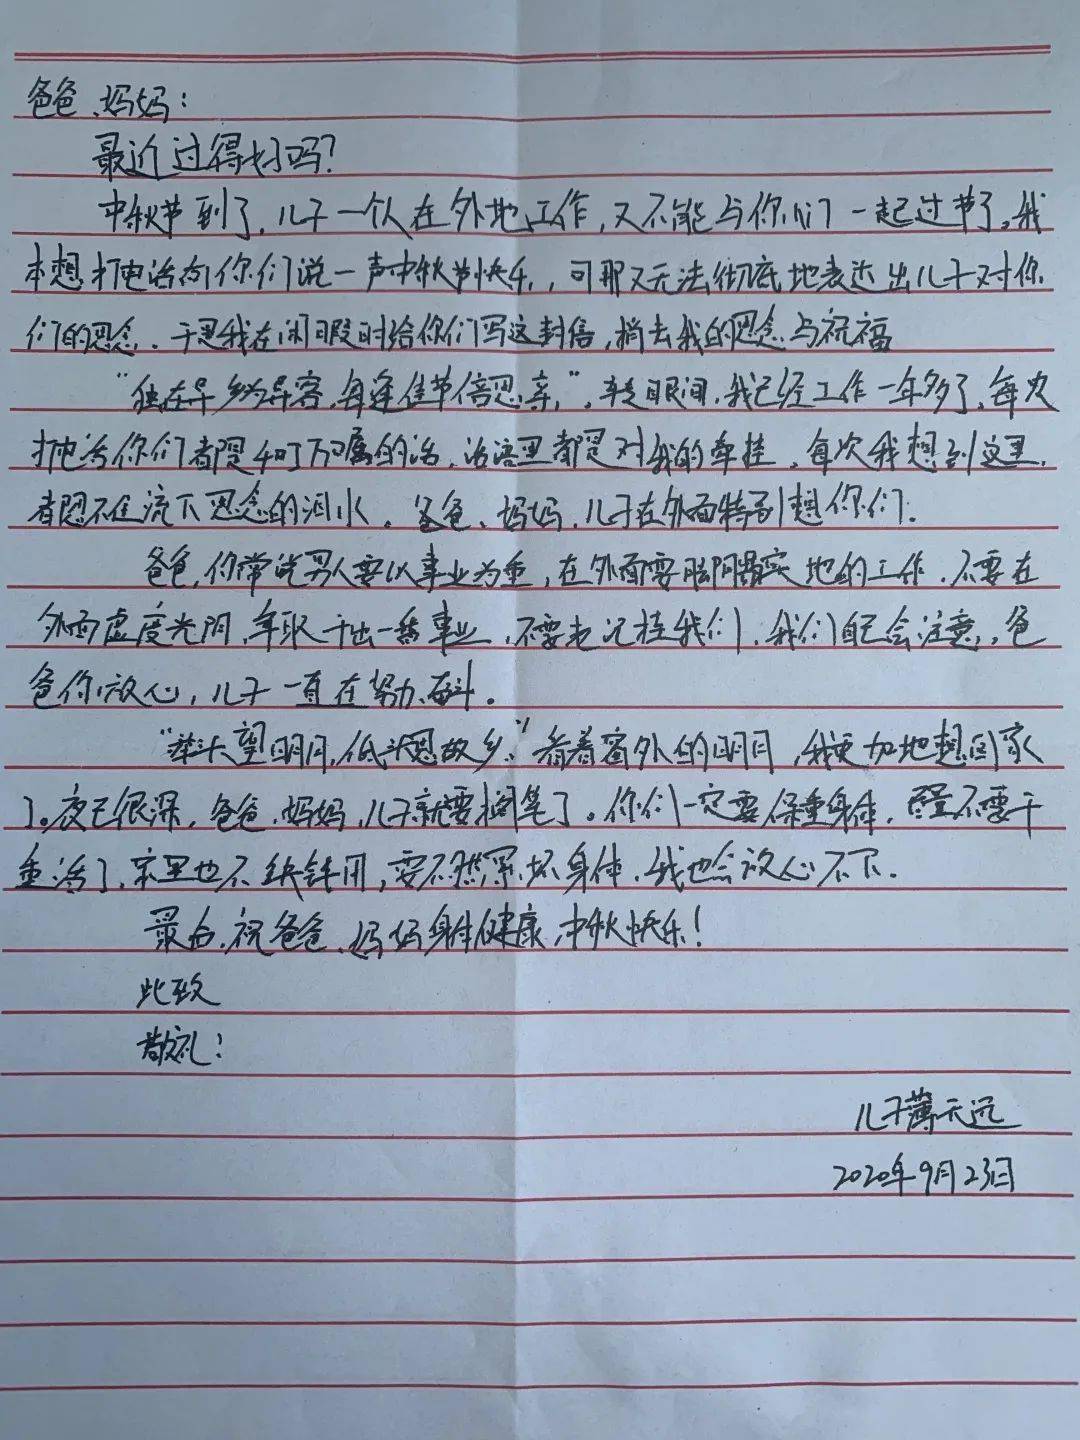 爸爸、妈妈：
最近过得好吗？
中秋节到了，儿子一个人在外地工作，又不能与你们一起过节了。我
本想打电话向你们说一声中秋节快乐，可那又无法彻底地表达出儿子对你
们的思念。于是我在闲暇时给你们写这封信，捎去我的思念与祝福
“独在异乡为异客，每逢佳节倍思亲”，转眼间，我已经工作一年多了，每次
打电话你们都是千叮万嘱的话，话语里都是对我的牵挂，每次我想到这里，
都忍不住流下思念的泪水。爸爸、妈妈，儿子在外面特别想你们。
爸爸，你常说男人要以事业为重，在外面要脚踏实地的工作，不要在
外面虚度光阴，争取干出一番事业，不要老记挂我们，我们自己会注意，爸
爸你放心，儿子一直在努力奋斗。
“举头望明月，低头思故乡。”看着窗外的明月，我更加地想回家
了。夜已很深，爸爸、妈妈，儿子就要搁笔了。你们一定要保重身体，尽量不要干
重活了，家里也不缺钱用，要不然累坏身体，我也会放心不下。
最后，祝爸爸、妈妈身体健康，中秋快乐！
此致
敬礼！
儿子薄天远
2020年9月23日